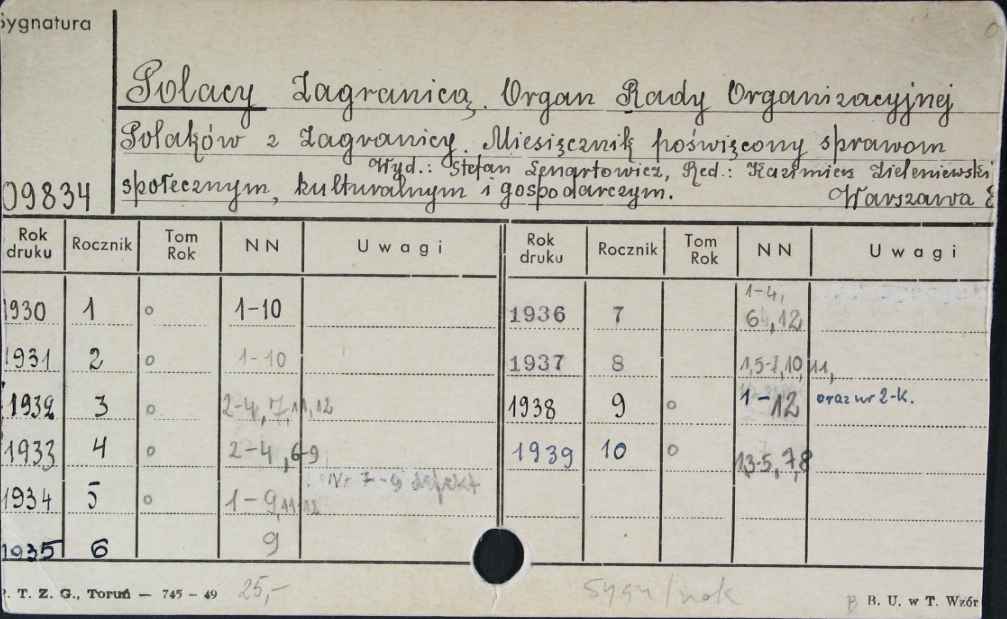 Sygnatura
Polacy Zagranicą. Organ Rady Organizacyjnej
Polaków z Zagranicy. Miesięcznik poświęcony sprawom
Wyd.: Stefan Lenartowicz, Red.: Kazimierz Zieleniewski
społecznym, kulturalnym i gospodarczym. Warszawa
09834
Rok druku Rocznik Tom Rok NN Uwagi Rok druku Rocznik Tom Rok NN Uwagi
1930 1 o 1-10 1936 7 1-4, 6, 12
1931 2 o 1-10 1937 8 1,5-8,10,11,
1932 3 o 2-4, 7, 11, 12 1938 9 o 1-12 oraz nr 2-K.
1933 4 o 2-4, 6-9 1939 10 o 1,3-5,7,8
Nr 7-9 defekt
1934 5 o 1-9, 11-12
1935 6 9
P. T. Z. G., Toruń — 745 – 49 25,- Sygn/nok B B. U. w T. Wzór